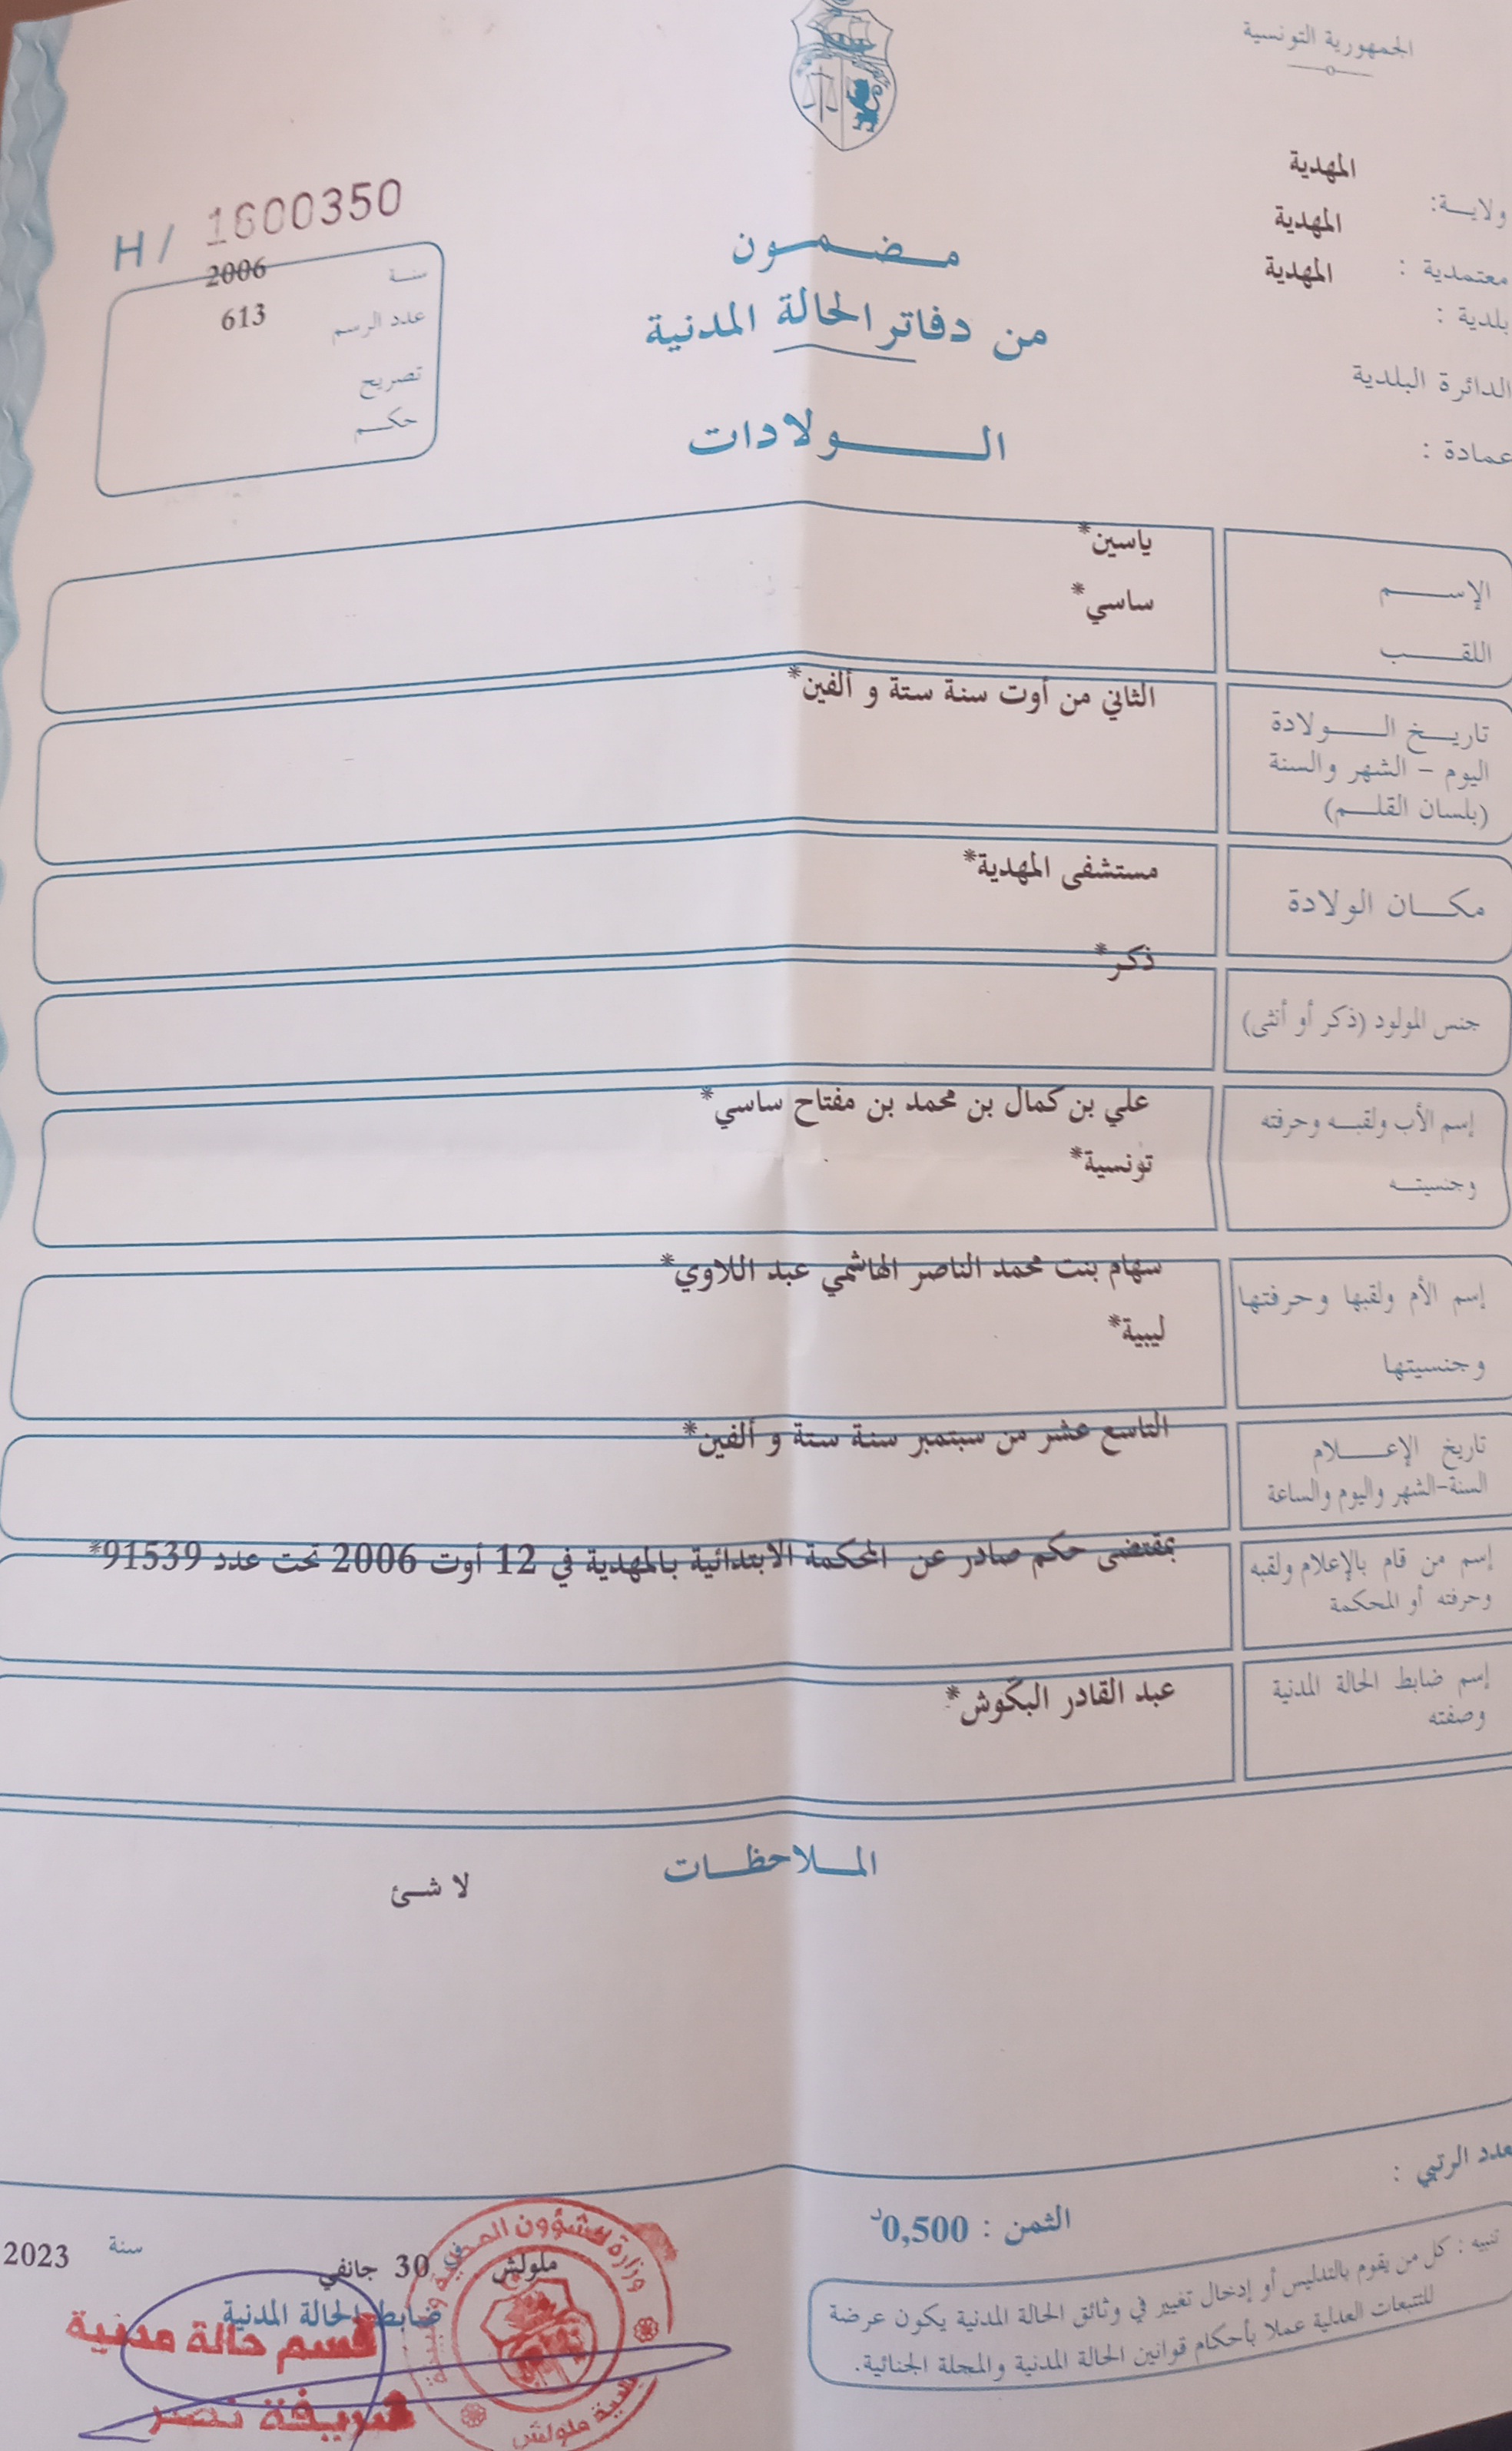 الجمهورية التونسية
ولايـة: المهدية
معتمدية : المهدية
بلدية : المهدية
الدائرة البلدية
عمادة :
H/ 1600350
سنة 2006
عدد الرسم 613
تصريح
حكم
مضمون
من دفاتر الحالة المدنية
الولادات
الإسم ياسين*
اللقب ساسي*
تاريخ الولادة
اليوم - الشهر والسنة
(بلسان القلم)
الثاني من أوت سنة ستة و ألفين*
مكان الولادة
مستشفى المهدية*
جنس المولود (ذكر أو أنثى)
ذكر*
إسم الأب ولقبه وحرفته
وجنسيته
علي بن كمال بن محمد بن مفتاح ساسي*
تونسية*
إسم الأم ولقبها وحرفتها
وجنسيتها
سهام بنت محمد الناصر الهاشمي عبد اللاوي*
ليبية*
تاريخ الإعلام
السنة-الشهر واليوم والساعة
التاسع عشر من سبتمبر سنة ستة و ألفين*
إسم من قام بالإعلام ولقبه
وحرفته أو المحكمة
بمقتضى حكم صادر عن المحكمة الابتدائية بالمهدية في 12 أوت 2006 تحت عدد 91539*
إسم ضابط الحالة المدنية
وصفته
عبد القادر البكوش*
الملاحظات
لا شئ
عدد الرتبي :
الثمن : 0,500د
تنبيه : كل من يقوم بالتدليس أو إدخال تغيير في وثائق الحالة المدنية يكون عرضة
للتتبعات العدلية عملا بأحكام قوانين الحالة المدنية والمجلة الجنائية.
ملولش في 30 جانفي سنة 2023
ضابط الحالة المدنية
قسم حالة مدنية
شريفة نصر
وزارة الشؤون المحلية
بلدية ملولش